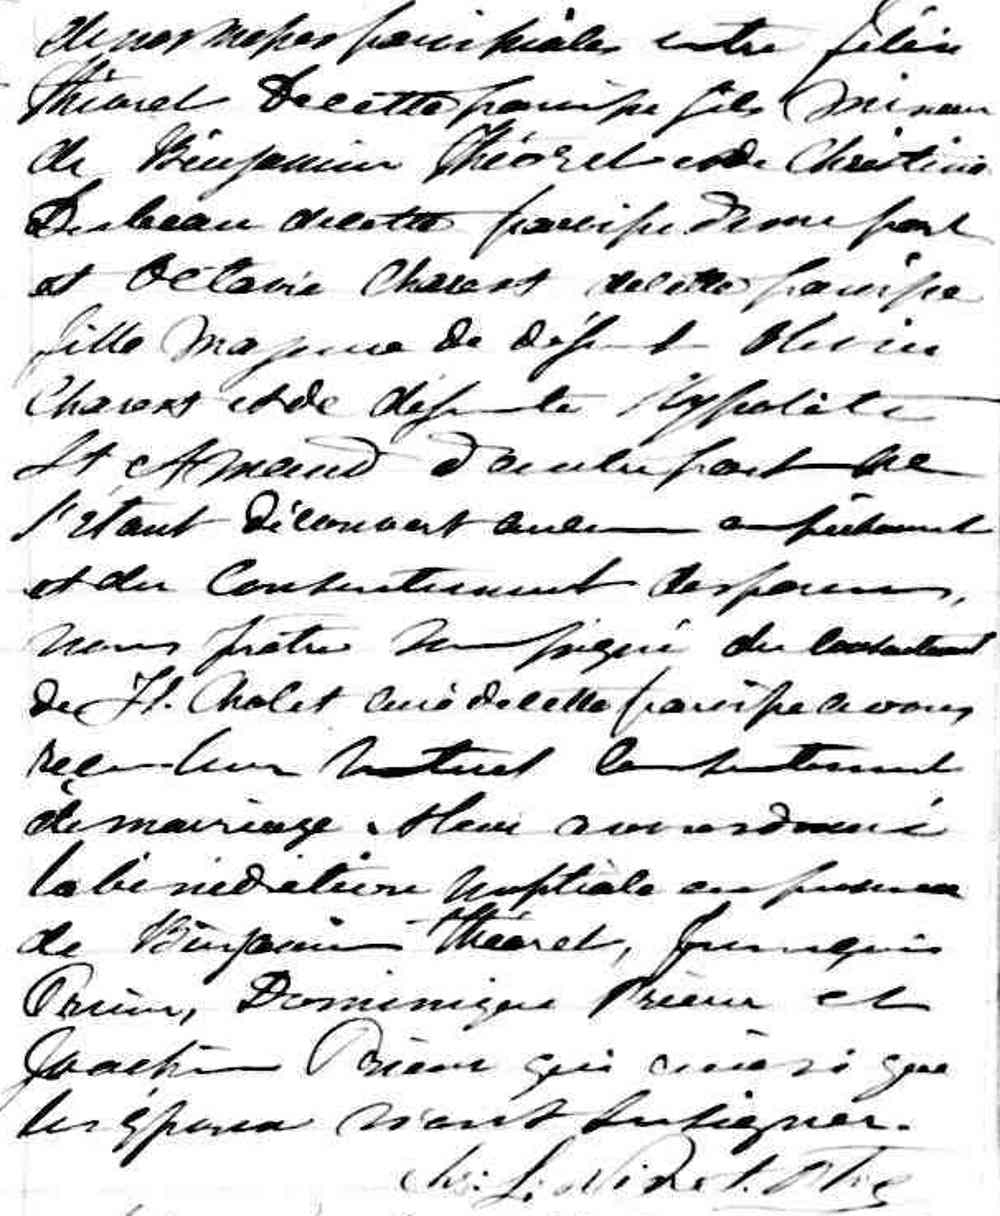 de nos messes paroissiales entre Félix
Théoret de cette paroisse fils mineur
de Benjamin Théoret et de Christine
Dubeau de cette paroisse d'une part
et Octavie Charest de cette paroisse
fille majeure de défunt Olivier
Charest et de défunte Hypolite
St Amand d'autre part ne
s'étant découvert aucun empêchement
et du consentement des parens,
nous prêtre soussigné du consentement
de Fl. Cholet curé de cette paroisse avons
reçu leur mutuel consentement
de mariage et leur avons donné
la bénédiction nuptiale en présence
de Benjamin Théoret, François
Prieur, Dominique Prieur et
Joachim Prieur qui ainsi que
les époux n'ont su signer.
Ptre